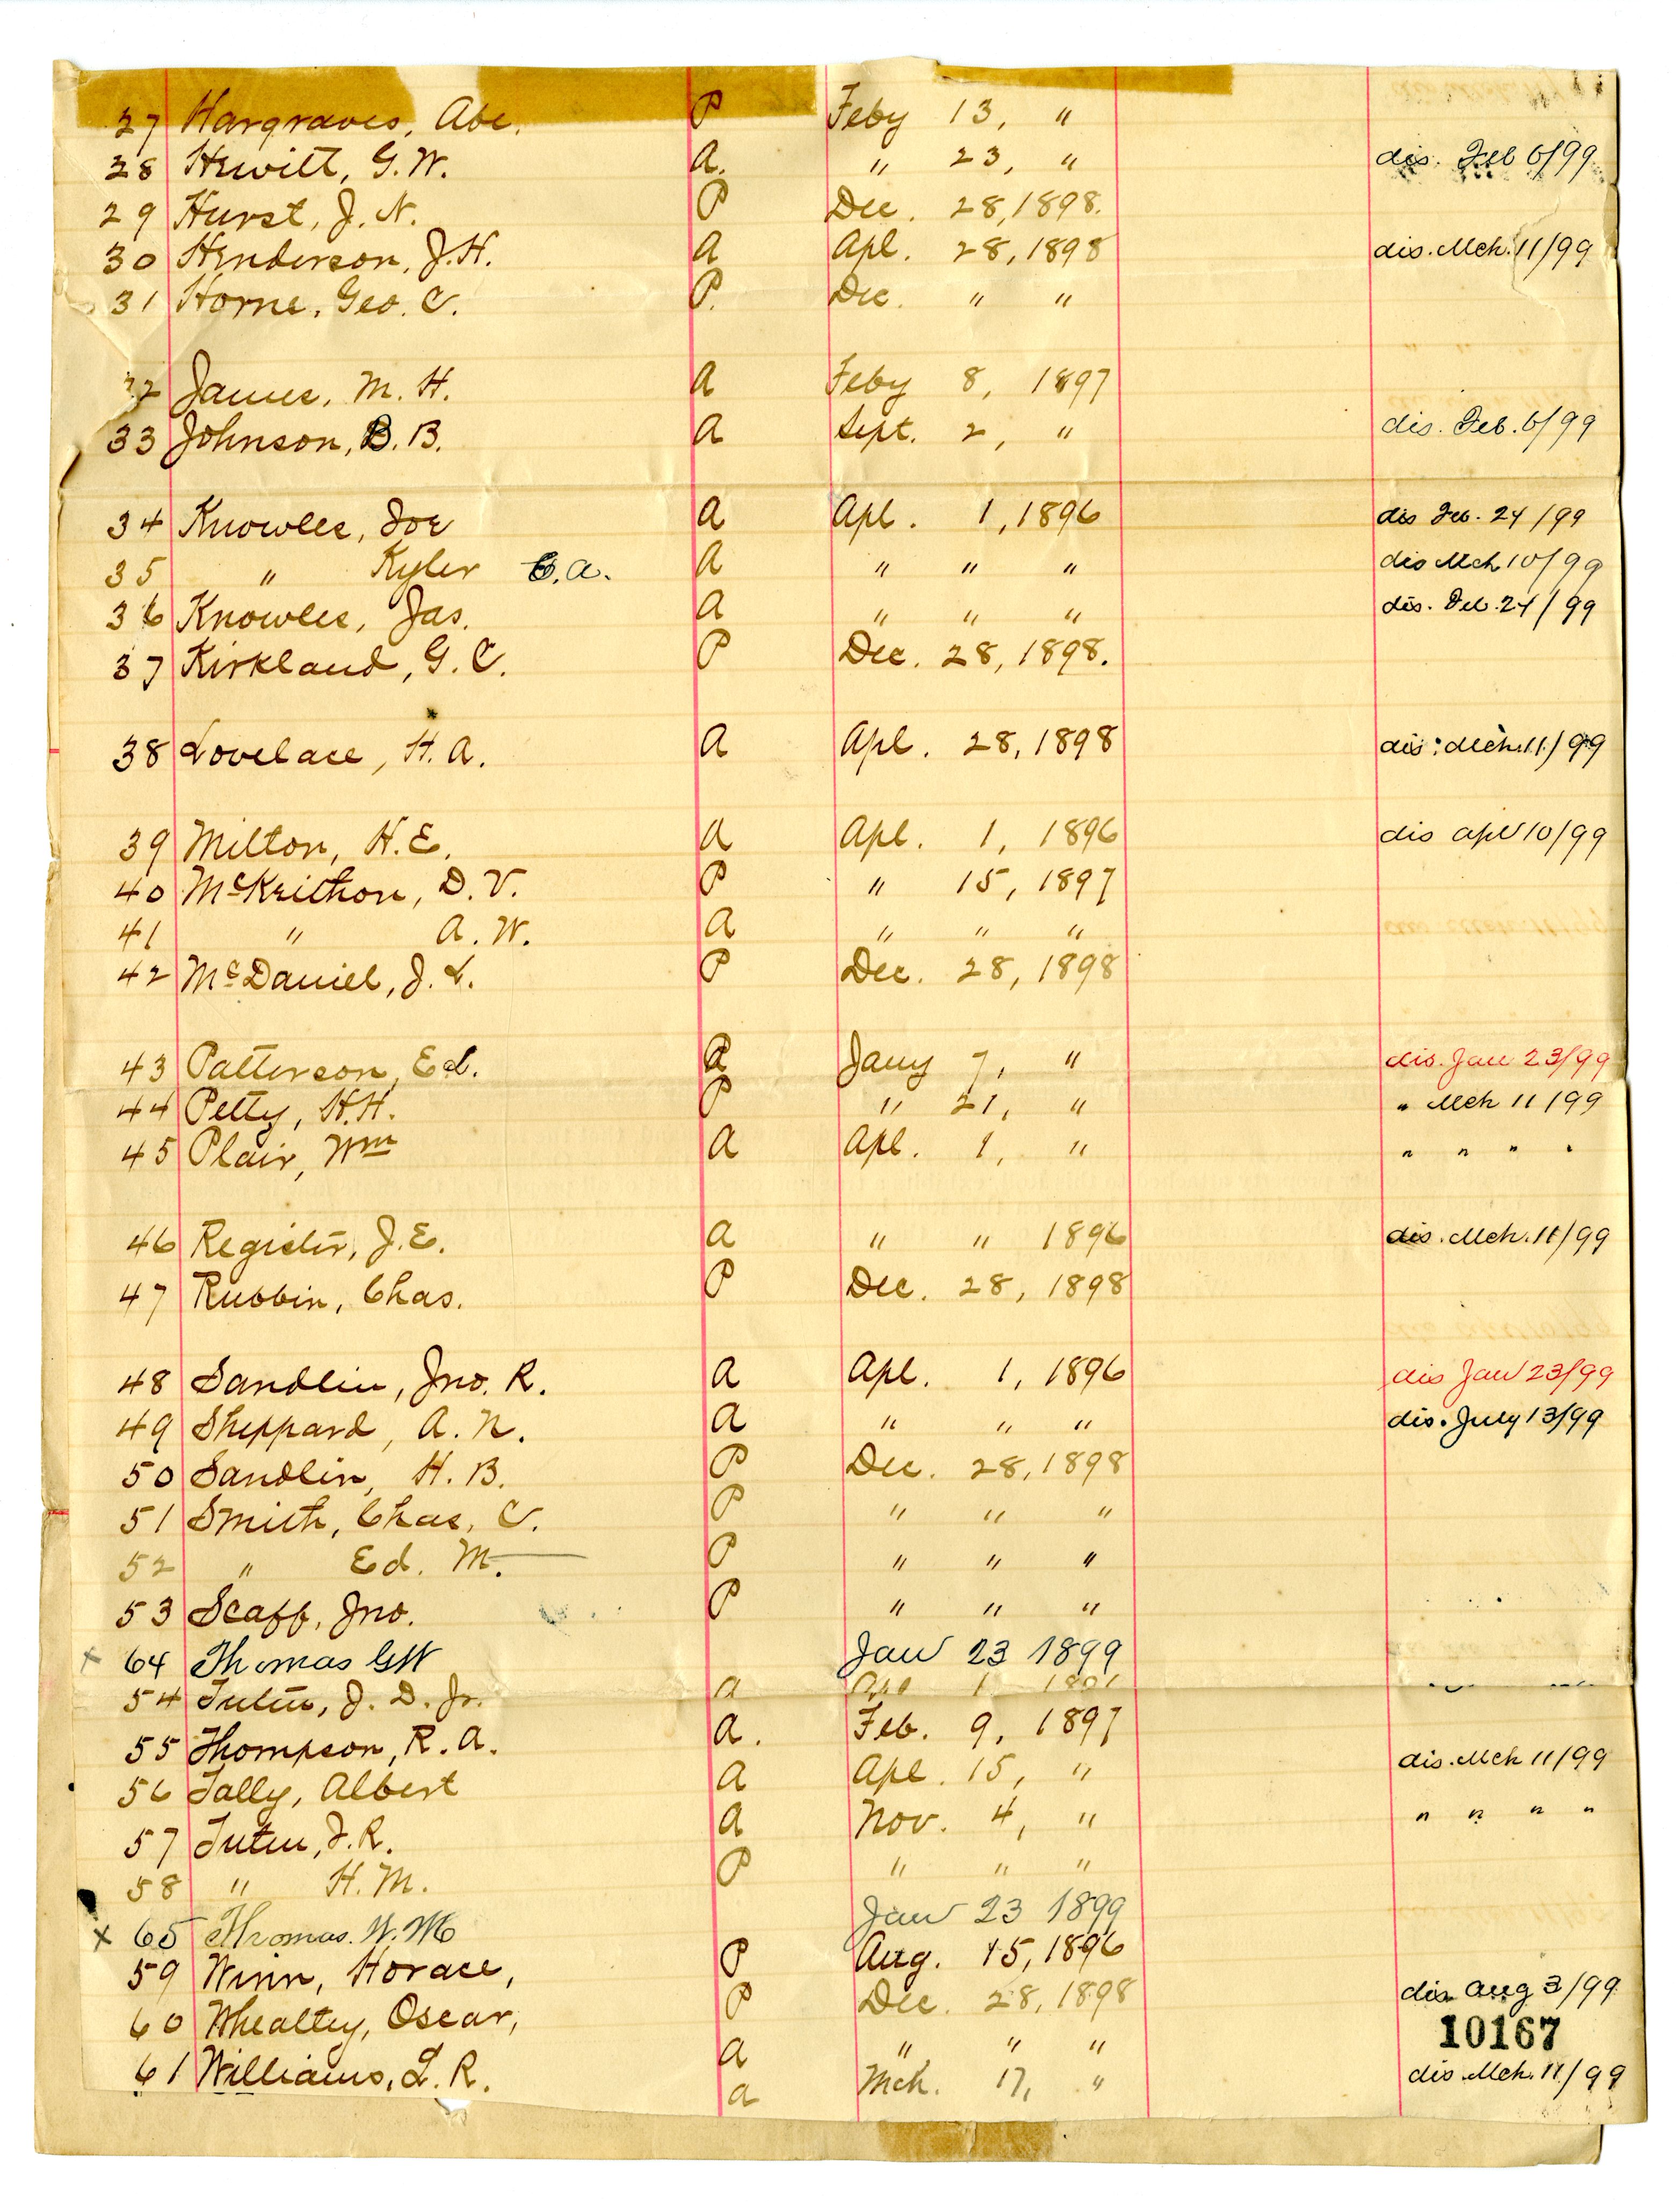 27 Hargraves, Abe. P Feby 13, "
28 Hewitt, G. W. A. " 23, " dis. Feb 6/99
29 Hurst, J. N. P Dec. 28, 1898.
30 Henderson, J. H. A Apl. 28, 1898 dis. Mch. 11/99
31 Horne, Geo. C. P. Dec. " "
32 James, M. H. A Feby 8, 1897
33 Johnson, B. B. A Sept. 2, " dis. Feb. 6/99
34 Knowles, Joe A Apl. 1, 1896 dis Feb. 24/99
35 " Kyler C. A. A " " " dis Mch 10/99
36 Knowles, Jas. A " " " dis. Feb. 24/99
37 Kirkland, G. C. P Dec. 28, 1898.
38 Lovelace, H. A. A Apl. 28, 1898 dis. Mch. 11/99
39 Milton, H. E. A Apl. 1, 1896 dis apl 10/99
40 McKeithon, D. V. P " 15, 1897
41 " A. W. A " " "
42 McDaniel, J. L. P Dec. 28, 1898
43 Patterson, Ed. Jany 7, " dis. Jan 23/99
44 Petty, H. H. P " 21, " " Mch 11/99
45 Plair, Wm A Apl. 1, " " " " "
46 Register, J. E. A " " 1896 dis. Mch. 11/99
47 Rubbin, Chas. P Dec. 28, 1898
48 Sandlin, Jno. R. A Apl. 1, 1896 dis Jan 23/99
49 Sheppard, A. N. A " " " dis. July 13/99
50 Sandlin, H. B. P Dec. 28, 1898
51 Smith, Chas. C. P " " "
52 " Ed. M. P " " "
53 Scaff, Jno. P " " "
x 64 Thomas G W Jan 23 1899
54 Tuten, J. D. Jr. A Apl 1
55 Thompson, R. A. A. Feb. 9, 1897
56 Tally, Albert A Apl. 15, " dis. Mch 11/99
57 Tuten, J. R. A Nov. 4, " " " " "
58 " H. M. P " " "
x 65 Thomas. W. M Jan 23 1899
59 Winn, Horace, P Aug. 15, 1896
60 Whealtey, Oscar, P Dec. 28, 1898 dis. Aug 3/99
10167
61 Williams, L. R. A " " "
a Mch. 17, " dis. Mch. 11/99